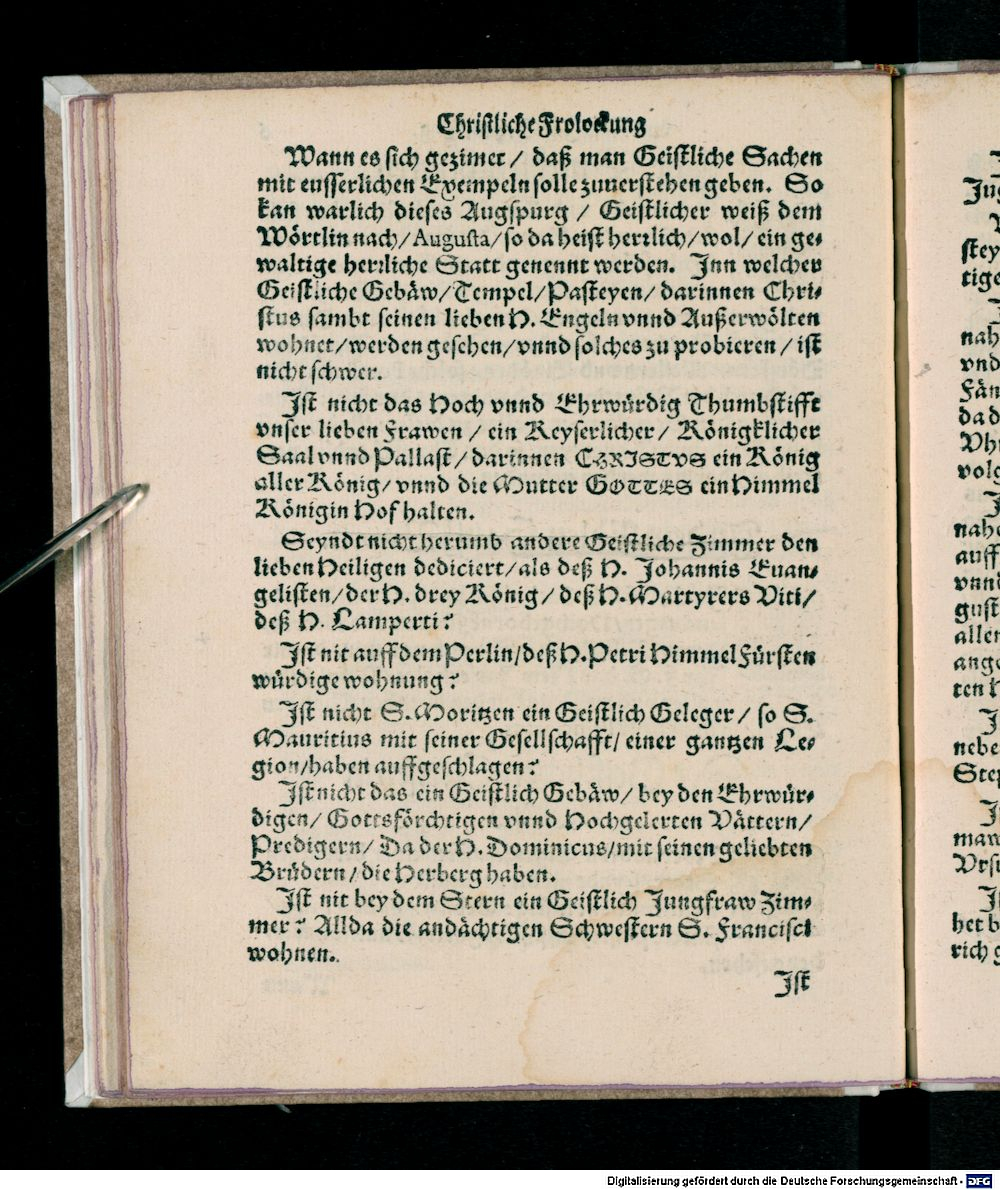 Christliche Frolockung
Wann es sich gezimet / daß man Geistliche Sachen
mit eusserlichen Exempeln solle zuuerstehen geben. So
kan warlich dieses Augspurg / Geistlicher weiß dem
Wörtlin nach / Augusta / so da heist herzlich / wol / ein ge-
waltige herzliche Statt genennt werden. Inn welcher
Geistliche Gebäw / Tempel / Pasteyen / darinnen Chri-
stus sambt seinen lieben H. Engeln vnnd Außerwölten
wohnet / werden gesehen / vnnd solches zu probieren / ist
nicht schwer.
Ist nicht das Hoch vnnd Ehrwürdig Thumbstifft
vnser lieben Frawen / ein Keyserlicher / Königklicher
Saal vnnd Pallast / darinnen CHRISTVS ein König
aller König / vnnd die Mutter GOTTES ein Himmel
Königin Hof halten.
Seyndt nicht herumb andere Geistliche Zimmer den
lieben Heiligen dediciert / als deß H. Johannis Euan-
gelisten / der H. drey König / deß H. Martyrers Viti /
deß H. Lamperti?
Ist nit auff dem Perlin / deß H. Petri Himmel Fürsten
würdige wohnung?
Ist nicht S. Moritzen ein Geistlich Geleger / so S.
Mauritius mit seiner Gesellschafft / einer gantzen Le-
gion / haben auffgeschlagen?
Ist nicht das ein Geistlich Gebäw / bey den Ehrwür-
digen / Gottsförchtigen vnnd Hochgelerten Vättern /
Predigern / Da der H. Dominicus / mit seinen geliebten
Brüdern / die Herberg haben.
Ist nit bey dem Stern ein Geistlich Jungfraw Zim-
mer? Allda die andächtigen Schwestern S. Francisci
wohnen.
Ist
Digitalisierung gefördert durch die Deutsche Forschungsgemeinschaft - DFG